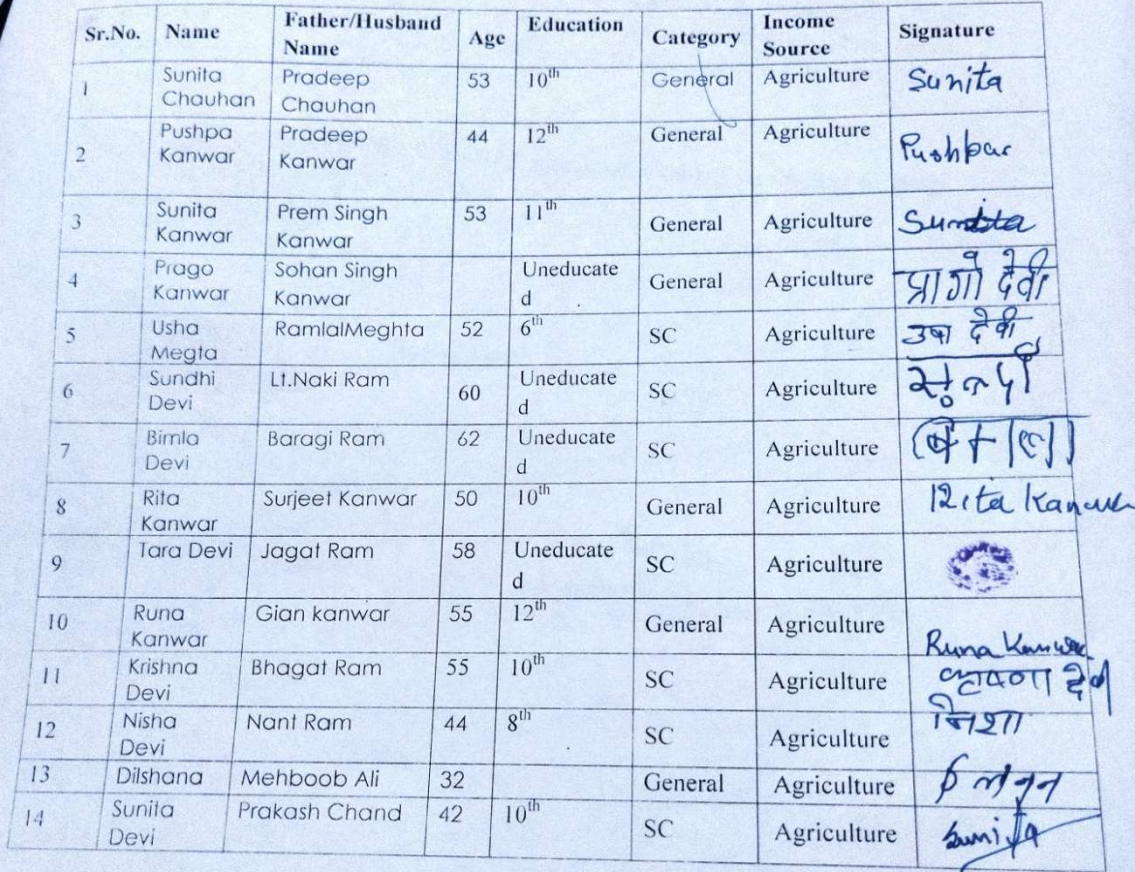 Sr.No. Name Father/Husband Name Age Education Category Income Source Signature
1 Sunita Chauhan Pradeep Chauhan 53 10th General Agriculture Sunita
2 Pushpa Kanwar Pradeep Kanwar 44 12th General Agriculture Pushpa
3 Sunita Kanwar Prem Singh Kanwar 53 11th General Agriculture Sunita
4 Prago Kanwar Sohan Singh Kanwar Uneducated General Agriculture प्रागो देवी
5 Usha Megta RamlalMeghta 52 6th SC Agriculture उषा देवी
6 Sundhi Devi Lt.Naki Ram 60 Uneducated SC Agriculture
7 Bimla Devi Baragi Ram 62 Uneducated SC Agriculture
8 Rita Kanwar Surjeet Kanwar 50 10th General Agriculture Rita Kanwar
9 Tara Devi Jagat Ram 58 Uneducated SC Agriculture
10 Runa Kanwar Gian kanwar 55 12th General Agriculture Runa Kanwar
11 Krishna Devi Bhagat Ram 55 10th SC Agriculture देवी
12 Nisha Devi Nant Ram 44 8th SC Agriculture निशा
13 Dilshana Mehboob Ali 32 General Agriculture
14 Sunita Devi Prakash Chand 42 10th SC Agriculture Sunita